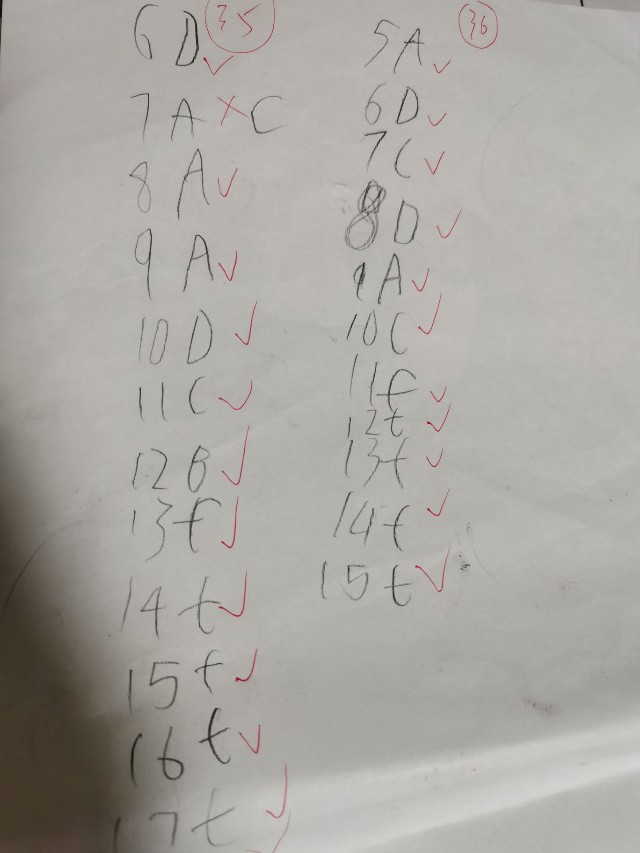 35
6 D
7 A × C
8 A
9 A
10 D
11 C
12 B
13 f
14 t
15 f
16 t
17 t
36
5 A
6 D
7 C
8 D
9 A
10 C
11 f
12 t
13 f
14 f
15 t